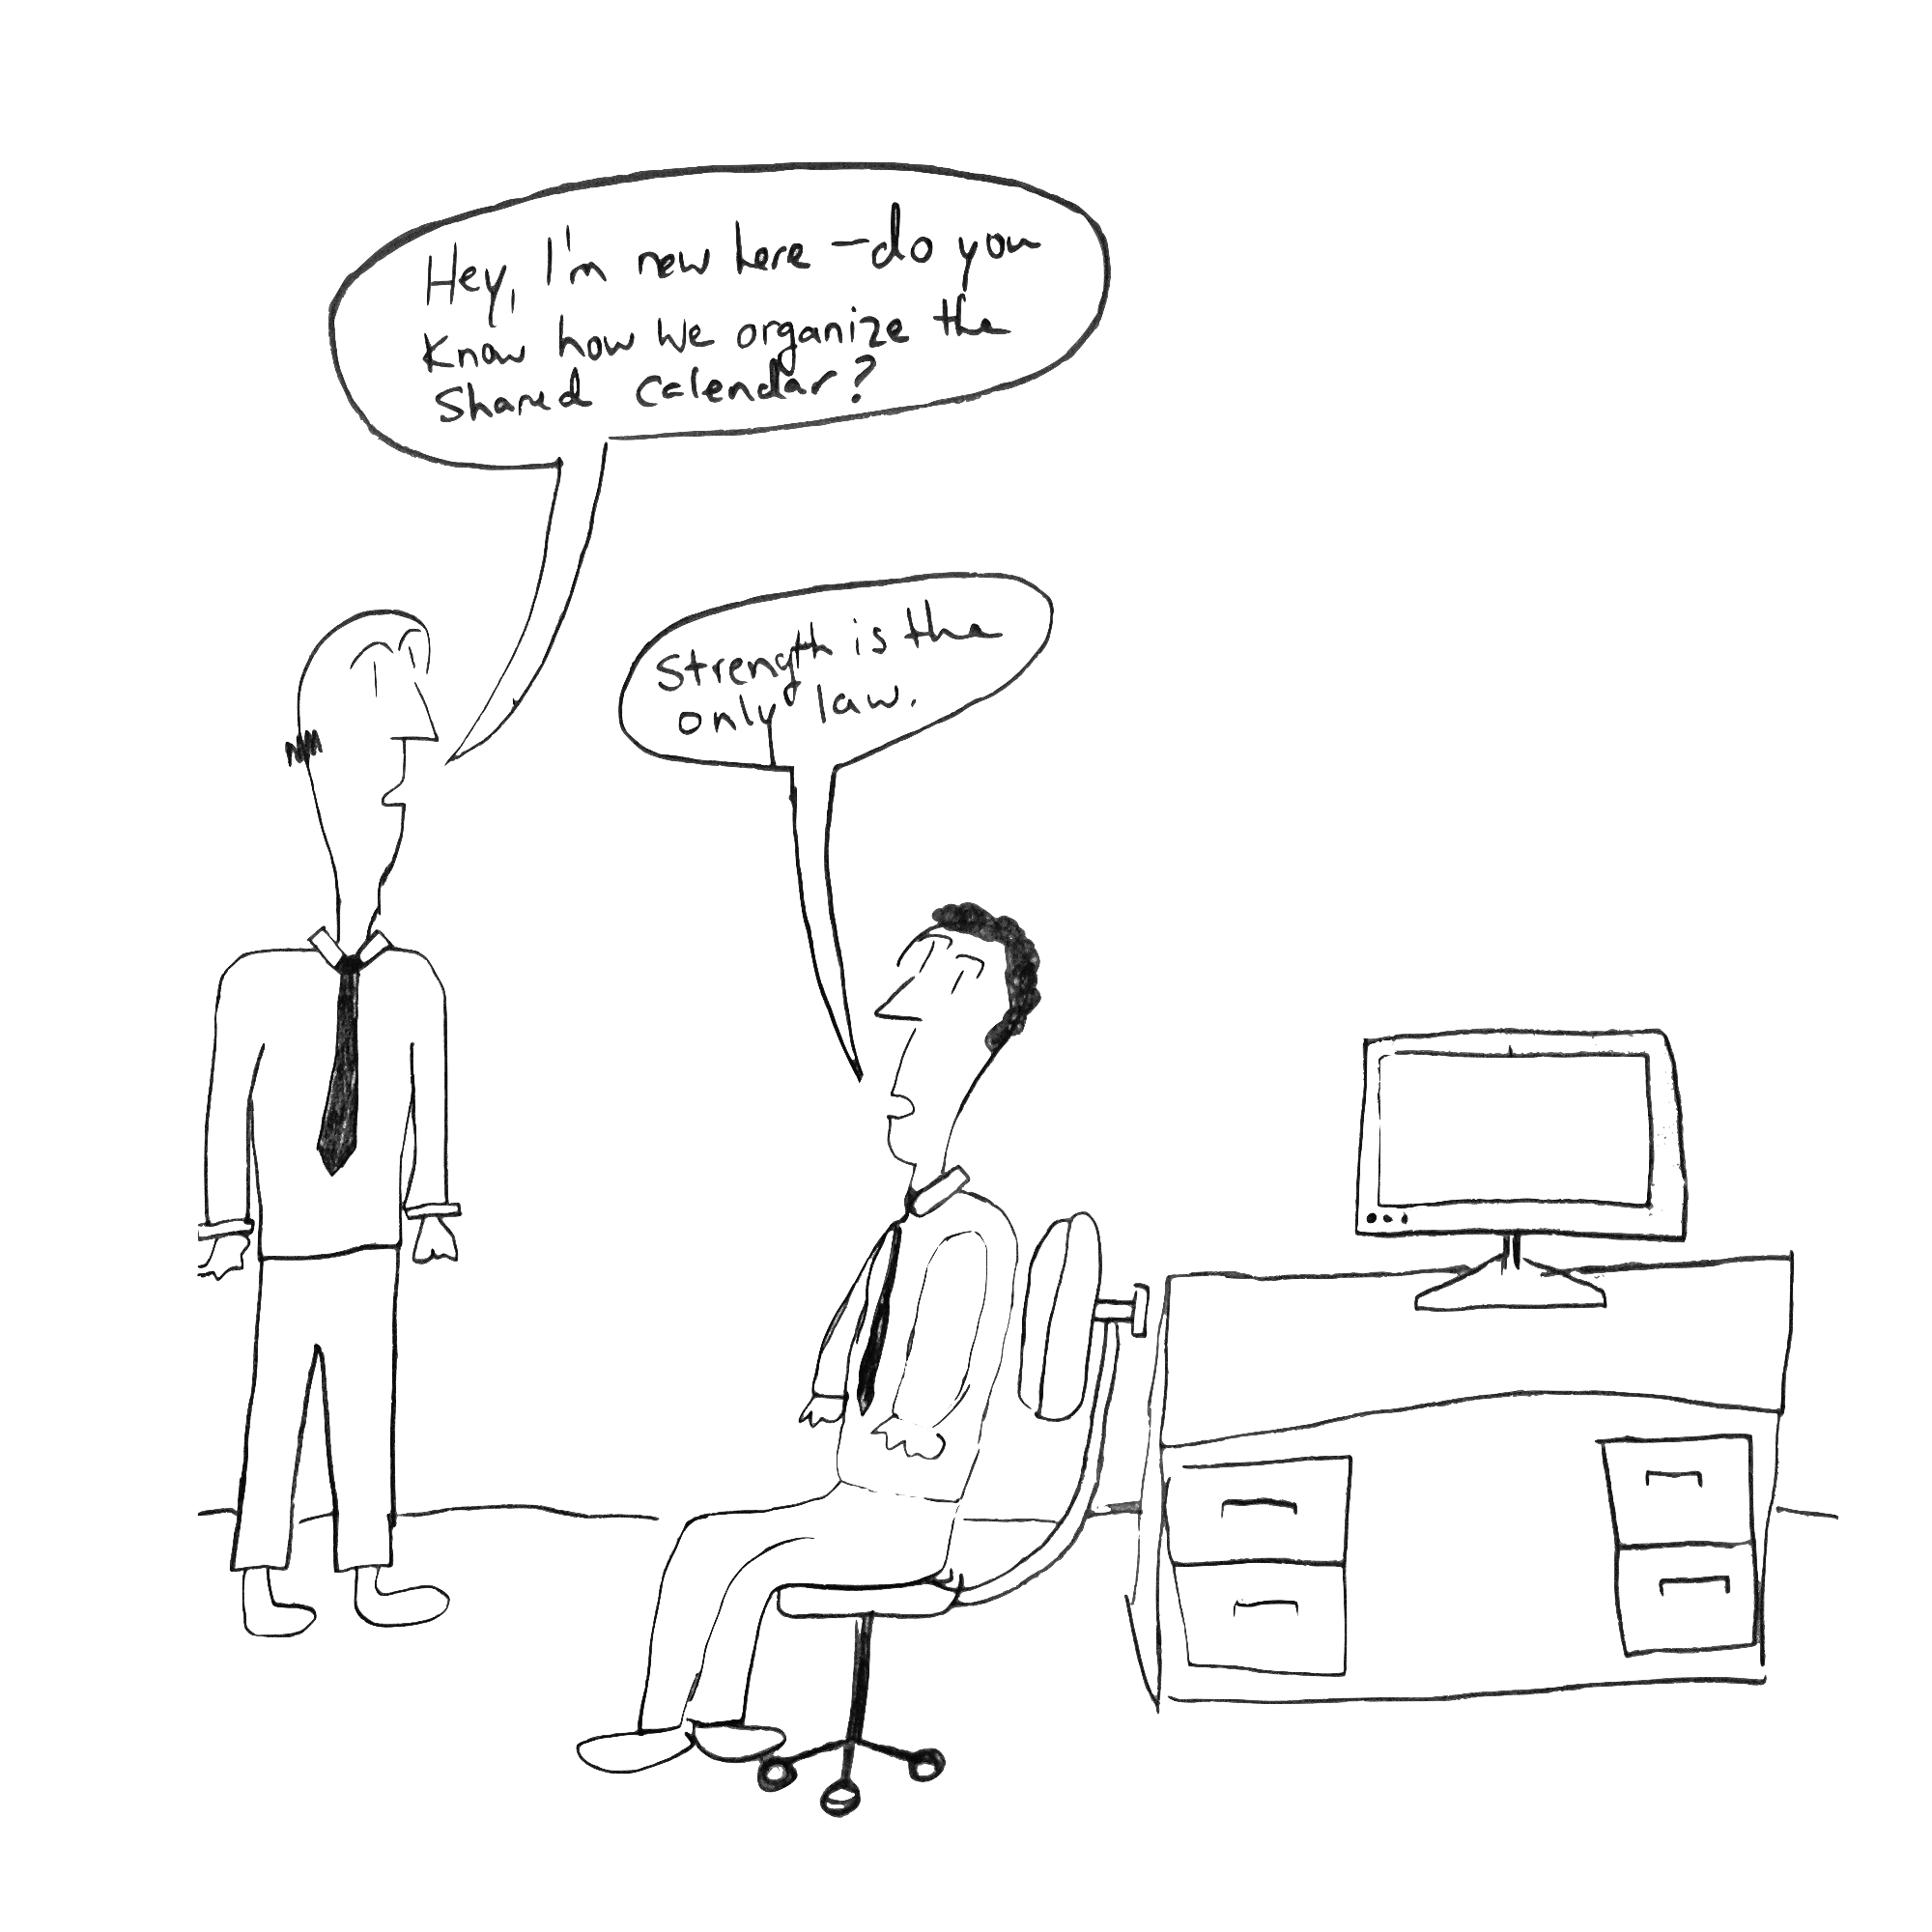 Hey, I'm new here – do you
know how we organize the
shared calendar?
Strength is the
only law.